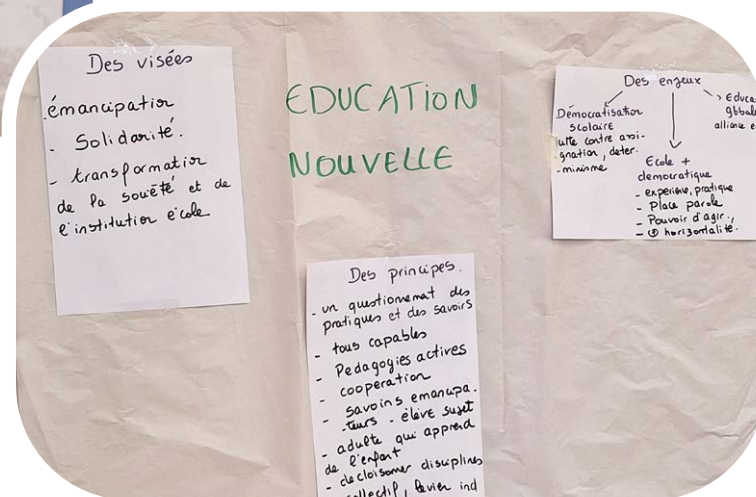 Des visées
émancipation
- Solidarité.
- transformation
de la société et de
l'institution école
EDUCATION
NOUVELLE
Des enjeux
Démocratisation
scolaire
lutte contre assi-
gnation, deter.
-minisme
Ecole +
democratique
- experience, pratique
- Place parole
- Pouvoir d'agir,
- horizontalité.
Educa
globale
alliance e
Des principes.
- un questionnemat des
pratiques et des savoirs
- tous capables
- Pedagogies actives
- cooperation
- savoins emancipa.
-teurs - élève sujet
- adulte qui apprend
de l'enfant
- decloisonner disciplines
collectif, levier ind